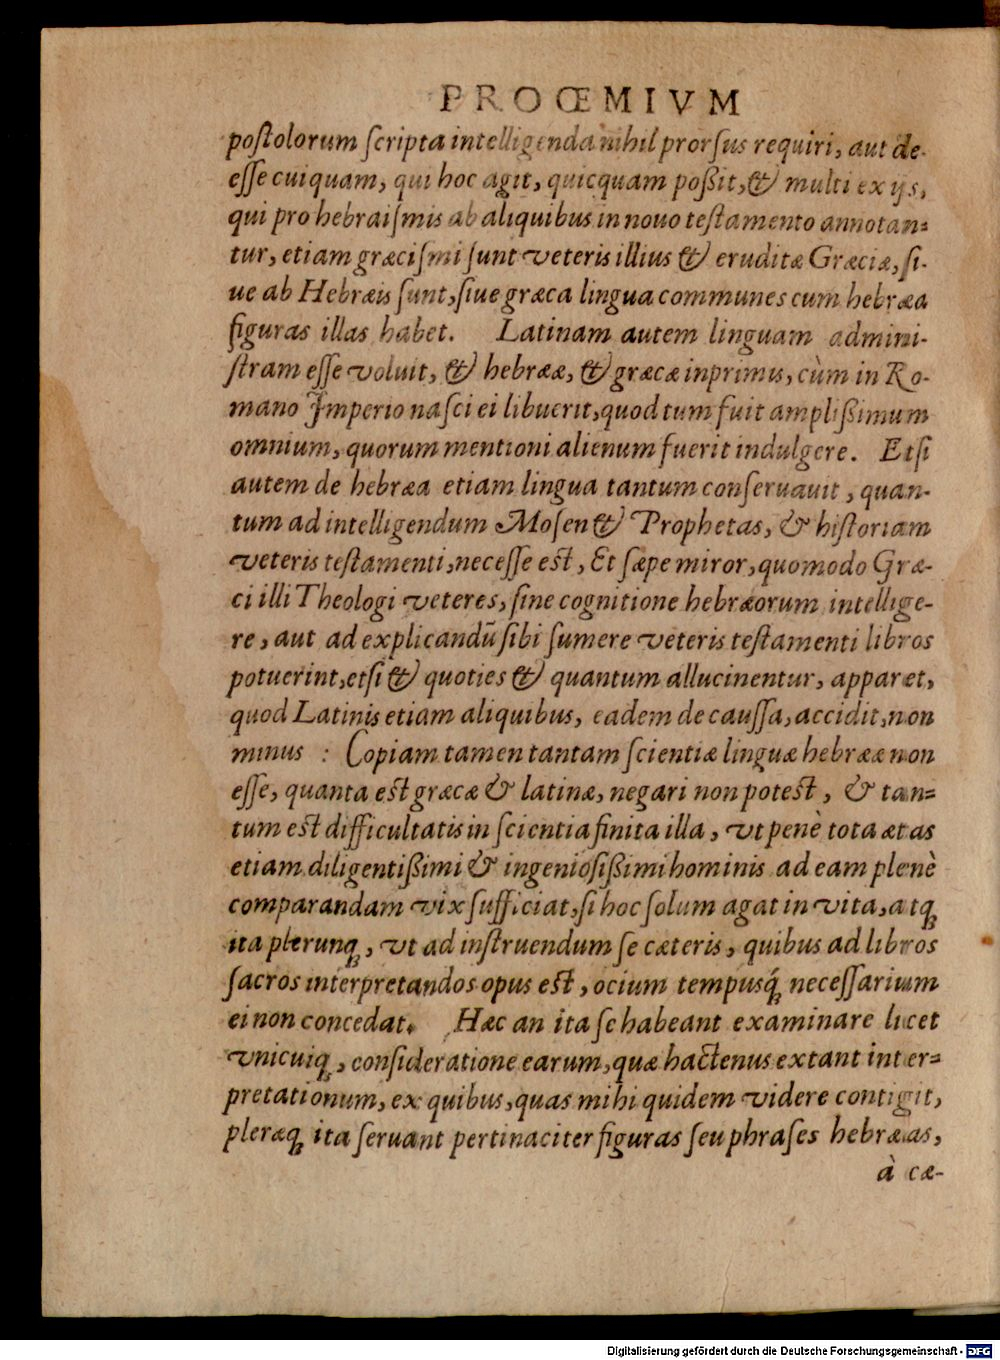 PROŒMIVM
postolorum scripta intelligenda nihil prorsus requiri, aut de-
esse cuiquam, qui hoc agit, quicquam poßit, & multi ex ijs,
qui pro hebraismis ab aliquibus in nouo testamento annotan=
tur, etiam græcismi sunt veteris illius & eruditæ Græciæ, si-
ue ab Hebræis sunt, siue græca lingua communes cum hebræa
figuras illas habet. Latinam autem linguam admini-
stram esse voluit, & hebrææ, & græcæ inprimis, cùm in Ro-
mano Imperio nasci ei libuerit, quod tum fuit amplißimum
omnium, quorum mentioni alienum fuerit indulgere. Etsi
autem de hebræa etiam lingua tantum conseruauit, quan-
tum ad intelligendum Mosen & Prophetas, & historiam
veteris testamenti, necesse est, Et sæpe miror, quomodo Græ-
ci illi Theologi veteres, sine cognitione hebræorum intellige-
re, aut ad explicandū sibi sumere veteris testamenti libros
potuerint, etsi & quoties & quantum allucinentur, apparet,
quod Latinis etiam aliquibus, eadem de caussa, accidit, non
minus : Copiam tamen tantam scientiæ linguæ hebrææ non
esse, quanta est græcæ & latinæ, negari non potest, & tan=
tum est difficultatis in scientia finita illa, vt penè tota ætas
etiam diligentißimi & ingeniosißimi hominis ad eam plenè
comparandam vix sufficiat, si hoc solum agat in vita, atq́
ita plerunq́, vt ad instruendum se cæteris, quibus ad libros
sacros interpretandos opus est, ocium tempusq́ necessarium
ei non concedat. Hæc an ita se habeant examinare licet
vnicuiq́, consideratione earum, quæ hactenus extant inter=
pretationum, ex quibus, quas mihi quidem videre contigit,
pleræq́ ita seruant pertinaciter figuras seu phrases hebræas,
à cæ-
Digitalisierung gefördert durch die Deutsche Forschungsgemeinschaft - DFG